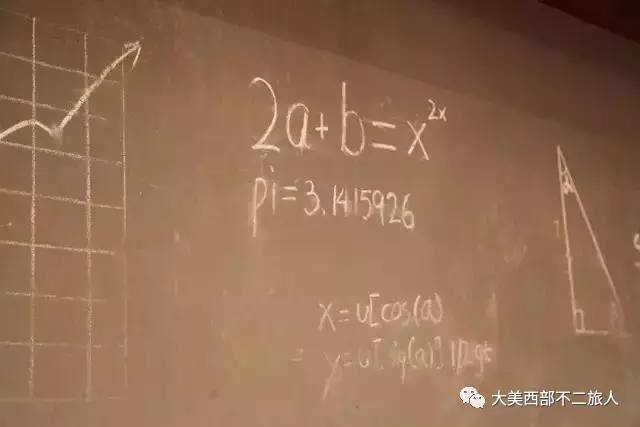 2a+b=x^{2x}
pi=3.1415926
x=u[cos(a)
大美西部不二旅人